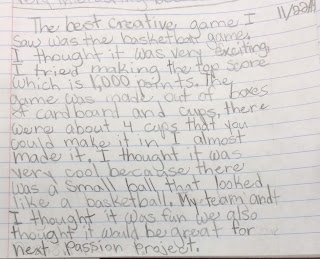 The best creative game I
saw was the basketball game.
I thought it was very exciting.
I tried making the top score
which is 1,000 points. The
game was made out of boxes
of cardboard and cups, there
were about 4 cups that you
could make it in. I almost
made it. I thought it was
very cool because there
was a small ball that looked
like a basketball. My team and
I thought it was fun we also
thought it would be great for
next passion project.